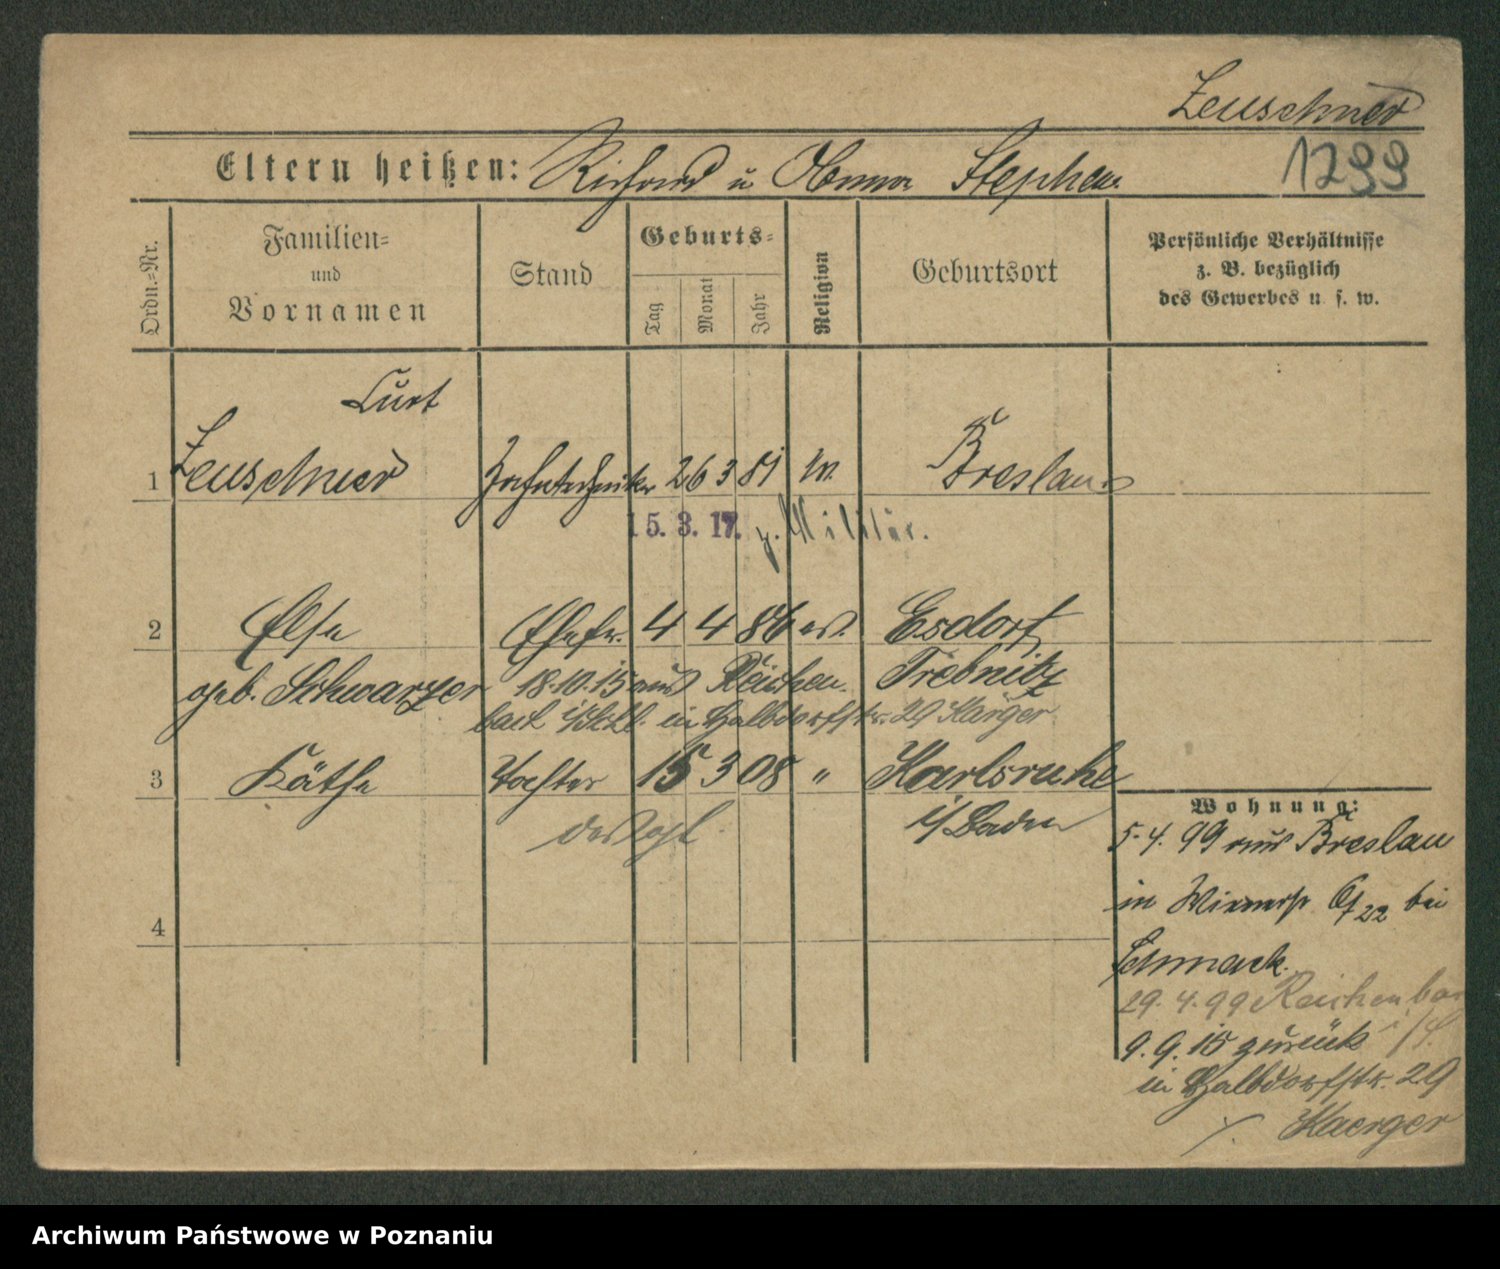 Zeuschner
Eltern heißen: Richard u Hanna Stephan
1299
Ordn.=Nr.
Familien=
und
Vornamen
Stand
Geburts=
Tag
Monat
Jahr
Religion
Geburtsort
Persönliche Verhältnisse
z. B. bezüglich
des Gewerbes u. s. w.
Curt
1 Zeuschner Zahntechniker 26 3 81 Breslau
15. 3. 17. z. Militär.
2 Else Ehefr. 4 4 86 ev. Esdorf
geb. Schwarzer 18.10.15 aus Reichen Trebnitz
bach i/Schl. in Halbdorfstr. 29 Kärger
3 Käthe Tochter 15 3 08 " Karlsruhe
desgl. i/Baden
4
Wohnung:
5. 4. 99 aus Breslau
in 22 bei
Schmack.
29. 4. 99 Reichenbach
9. 9. 15 zurück
in Halbdorfstr. 29
Kaerger
Archiwum Państwowe w Poznaniu